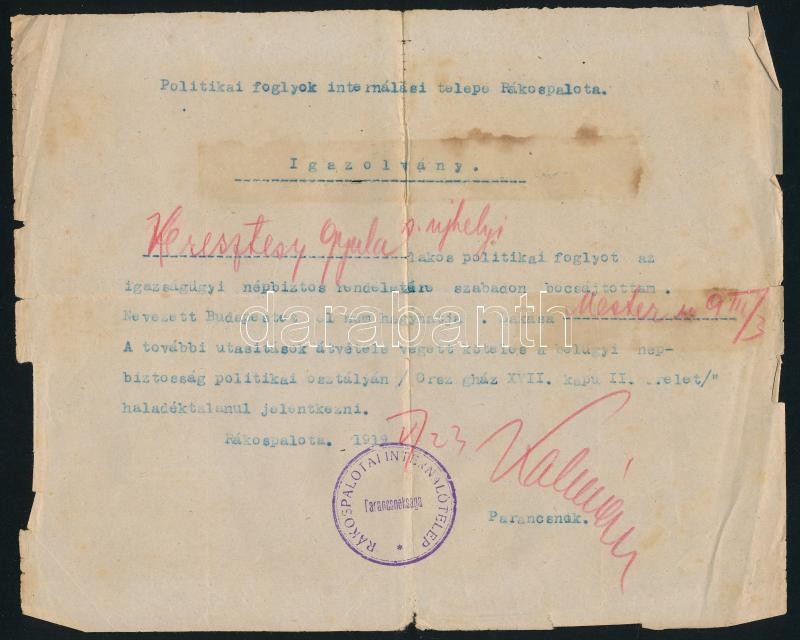 Politikai foglyok internálási telepe Rákospalota.
Igazolvány.
Keresztesy Gyula s. ujhelyi
lakos politikai foglyot az
igazságügyi népbiztos rendeletére szabadon bocsájtottam.
Nevezett Budapestet el nem hagyhatja. Lakása Mester u 9 III/3
A további utasitások átvétele végett köteles a belügyi nép-
biztosság politikai osztályán /Országház XVII. kapu II. /"
haladéktalanul jelentkezni.
Rákospalota. 1919 VI/23 Kálmán
Parancsnok.
RÁKOSPALOTAI INTERNÁLÓTELEP
Parancsnoksága
*
darabanth